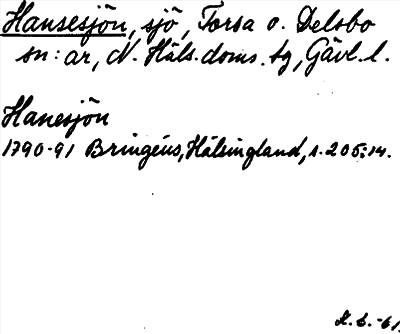 Hansesjön, sjö, Torsa o. Delsbo
sn:ar, N. Häls. doms. tg, Gävl. l.
Hanesjön
1790-91 Bringéus, Hälsingland, s. 205:14.
-61.